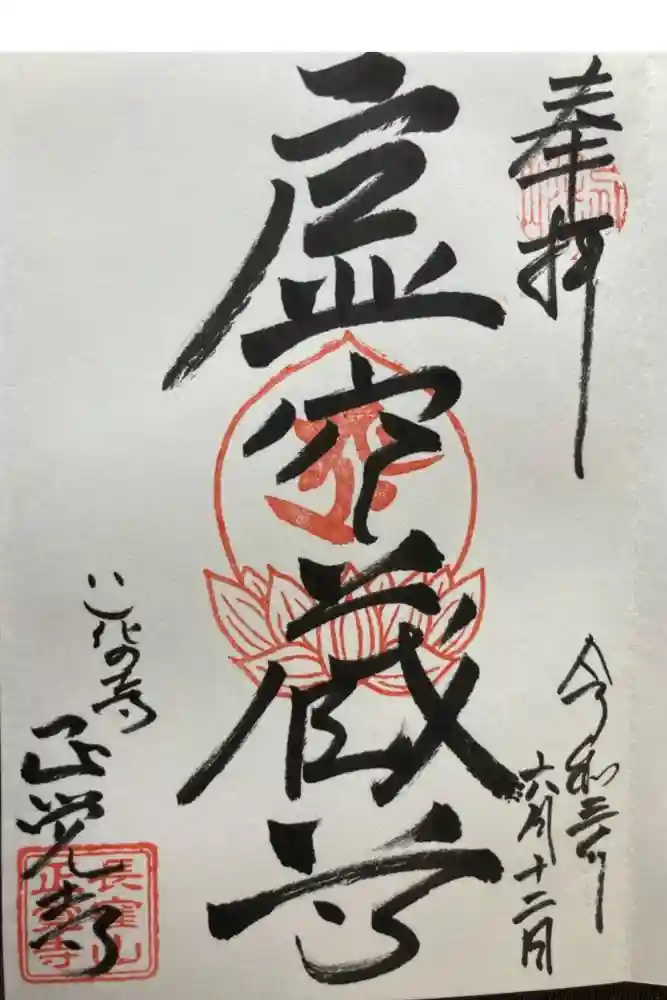 奉拝
令和三年
六月十二日
虚空蔵尊
心花の寺
正覚寺
長窪山
正覚寺